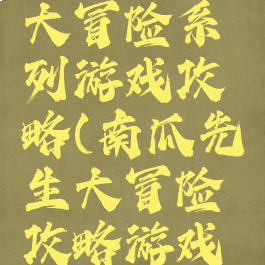 大冒险系
列游戏攻
略(南瓜先
生大冒险
攻略游戏